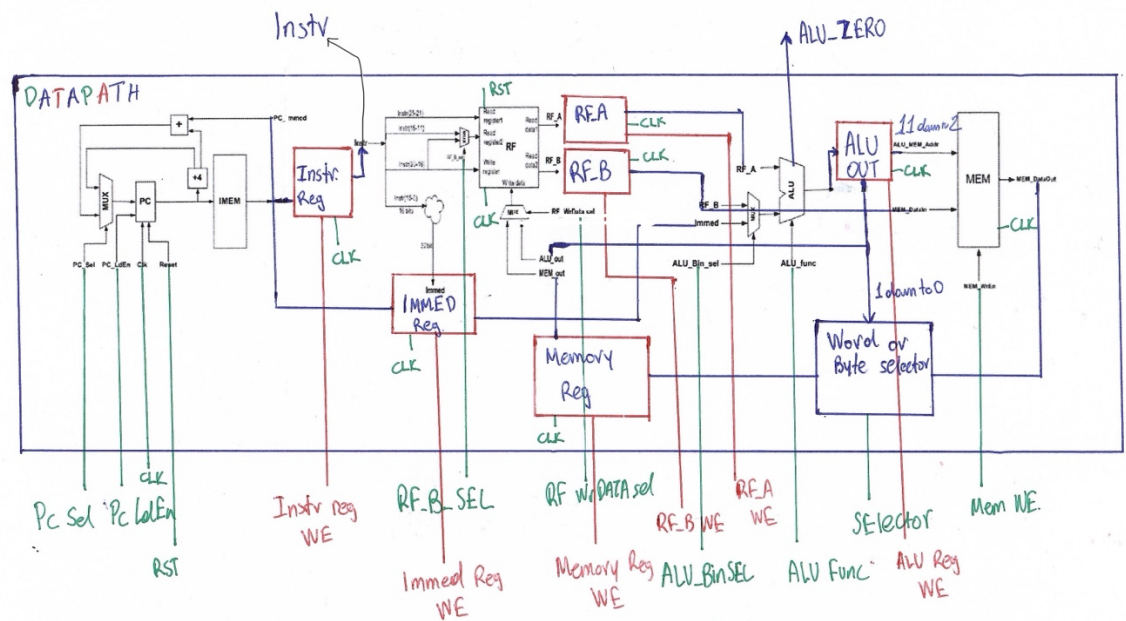 Instr
ALU_ZERO
DATAPATH
PC_Immed
+
+4
MUX
PC
IMEM
PC_Sel
PC_LdEn
Clk
Reset
Instr.
Reg
CLK
Instr
Instr(25-21)
Instr(15-11)
Instr(20-16)
Instr(15-0)
16 bits
32bit
Immed
IMMED
Reg
CLK
RST
Read
register1
Read
register2
Write
register
Read
data1
RF
Read
data2
Write data
CLK
MUX
RF_WrData sel
ALU_out
MEM_out
RF_A
RF_B
RF_A
CLK
RF_B
CLK
Memory
Reg
CLK
RF_A
RF_B
Immed
MUX
ALU
ALU_Bin_sel
ALU_func
ALU
OUT
CLK
11 downto 2
ALU_MEM_Addr
MEM_DataIn
MEM
MEM_DataOut
CLK
MEM_WrEn
1 downto 0
Word or
Byte selector
Pc Sel
Pc LdEn
CLK
RST
Instr reg
WE
RF_B_SEL
Immed Reg
WE
RF WrDATA sel
Memory Reg
WE
RF_B WE
RF_A
WE
ALU_BinSEL
ALU Func
SElector
ALU Reg
WE
Mem WE.